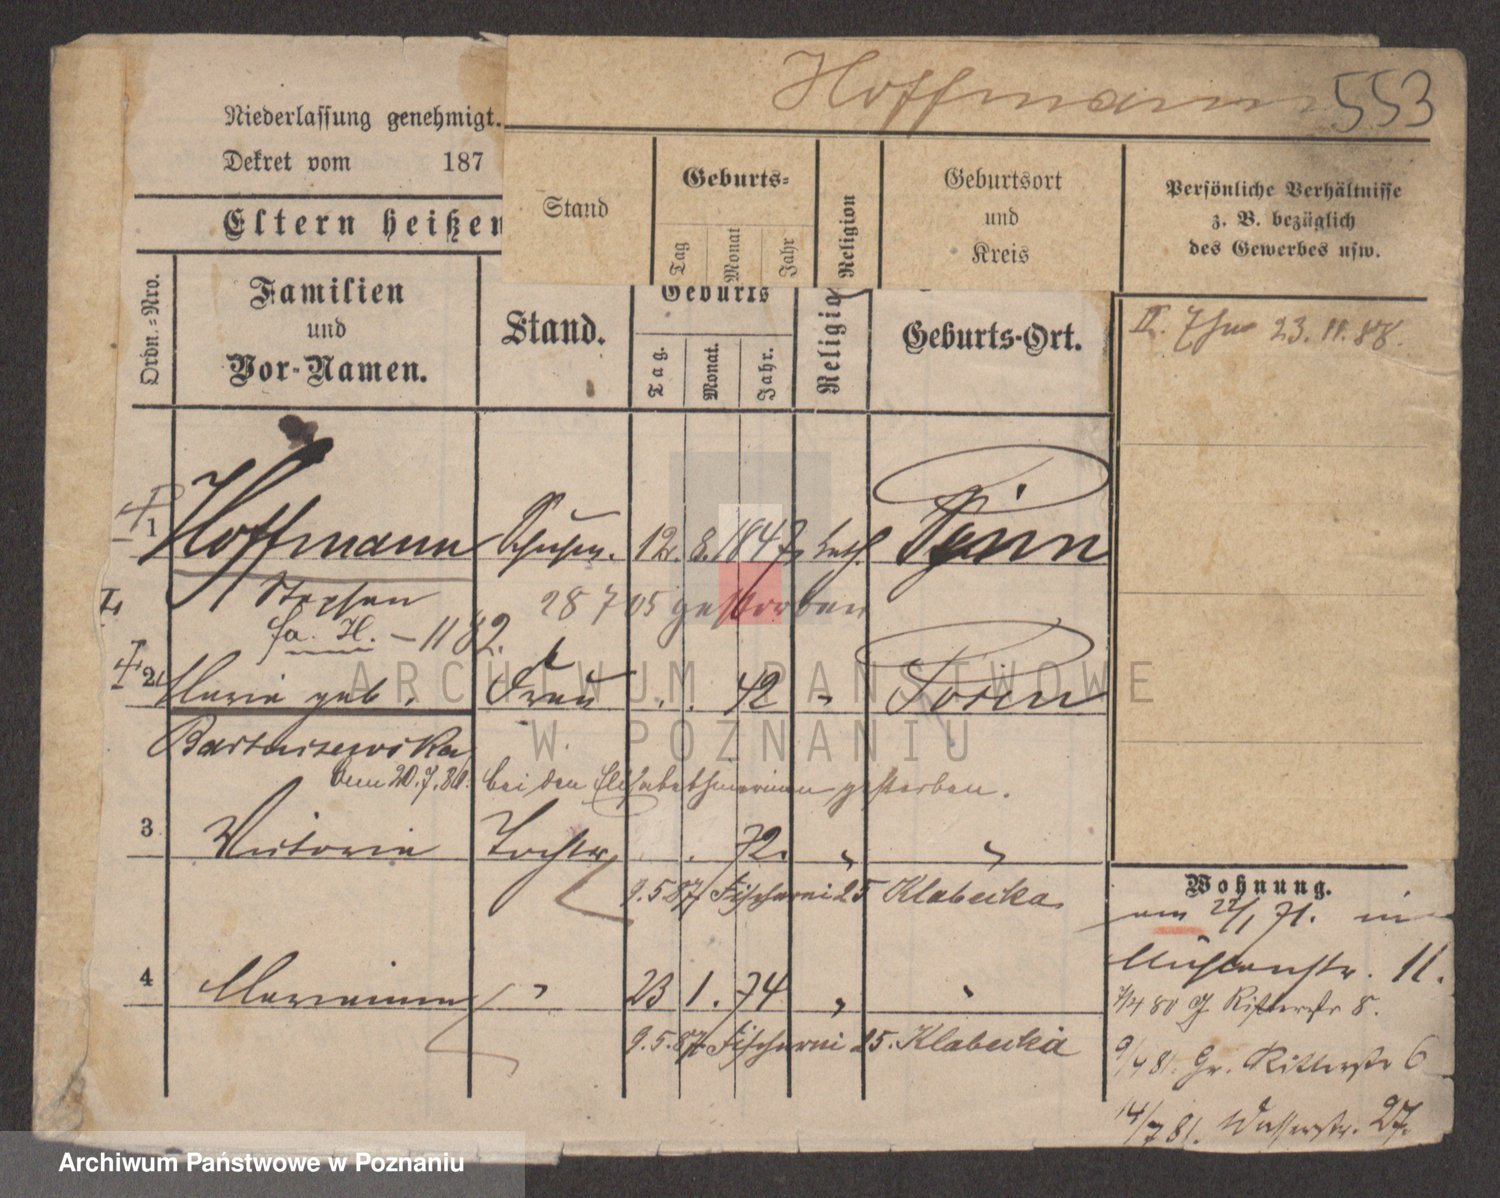 Hoffmann 553
Niederlassung genehmigt.
Dekret vom 187
Eltern heißen
Stand
Geburts-
Tag
Monat
Jahr
Religion
Geburtsort
und
Kreis
Persönliche Verhältnisse
z. B. bezüglich
des Gewerbes usw.
Ordn.-Nro.
Familien
und
Vor-Namen.
Stand.
Geburts
Tag.
Monat.
Jahr.
Religio
Geburts-Ort.
23. 11. 88.
1 Hoffmann 12. 8. 1847 kath.
Stephan 28 7 05 gestorben
fa. H. – 11 82.
2 Maria geb. Frau 42 Posen
Bartoszewska
20. 7. 81. bei den Elisabethinerinnen gestorben.
3 Victoria Tochter 72. "
9. 5. 87 Fischerei 25 Klabecka
4 Marianna " 23 1. 74 "
9. 5. 87 Fischerei 25. Klabecka
Wohnung.
am 22/1 71. in
Mühlenstr. 11.
7/4 80 Gr. Ritterstr 8.
9/4 81. Gr. Ritterstr 6
14/7 81. Wasserstr. 27.
ARCHIWUM PAŃSTWOWE
W POZNANIU
Archiwum Państwowe w Poznaniu